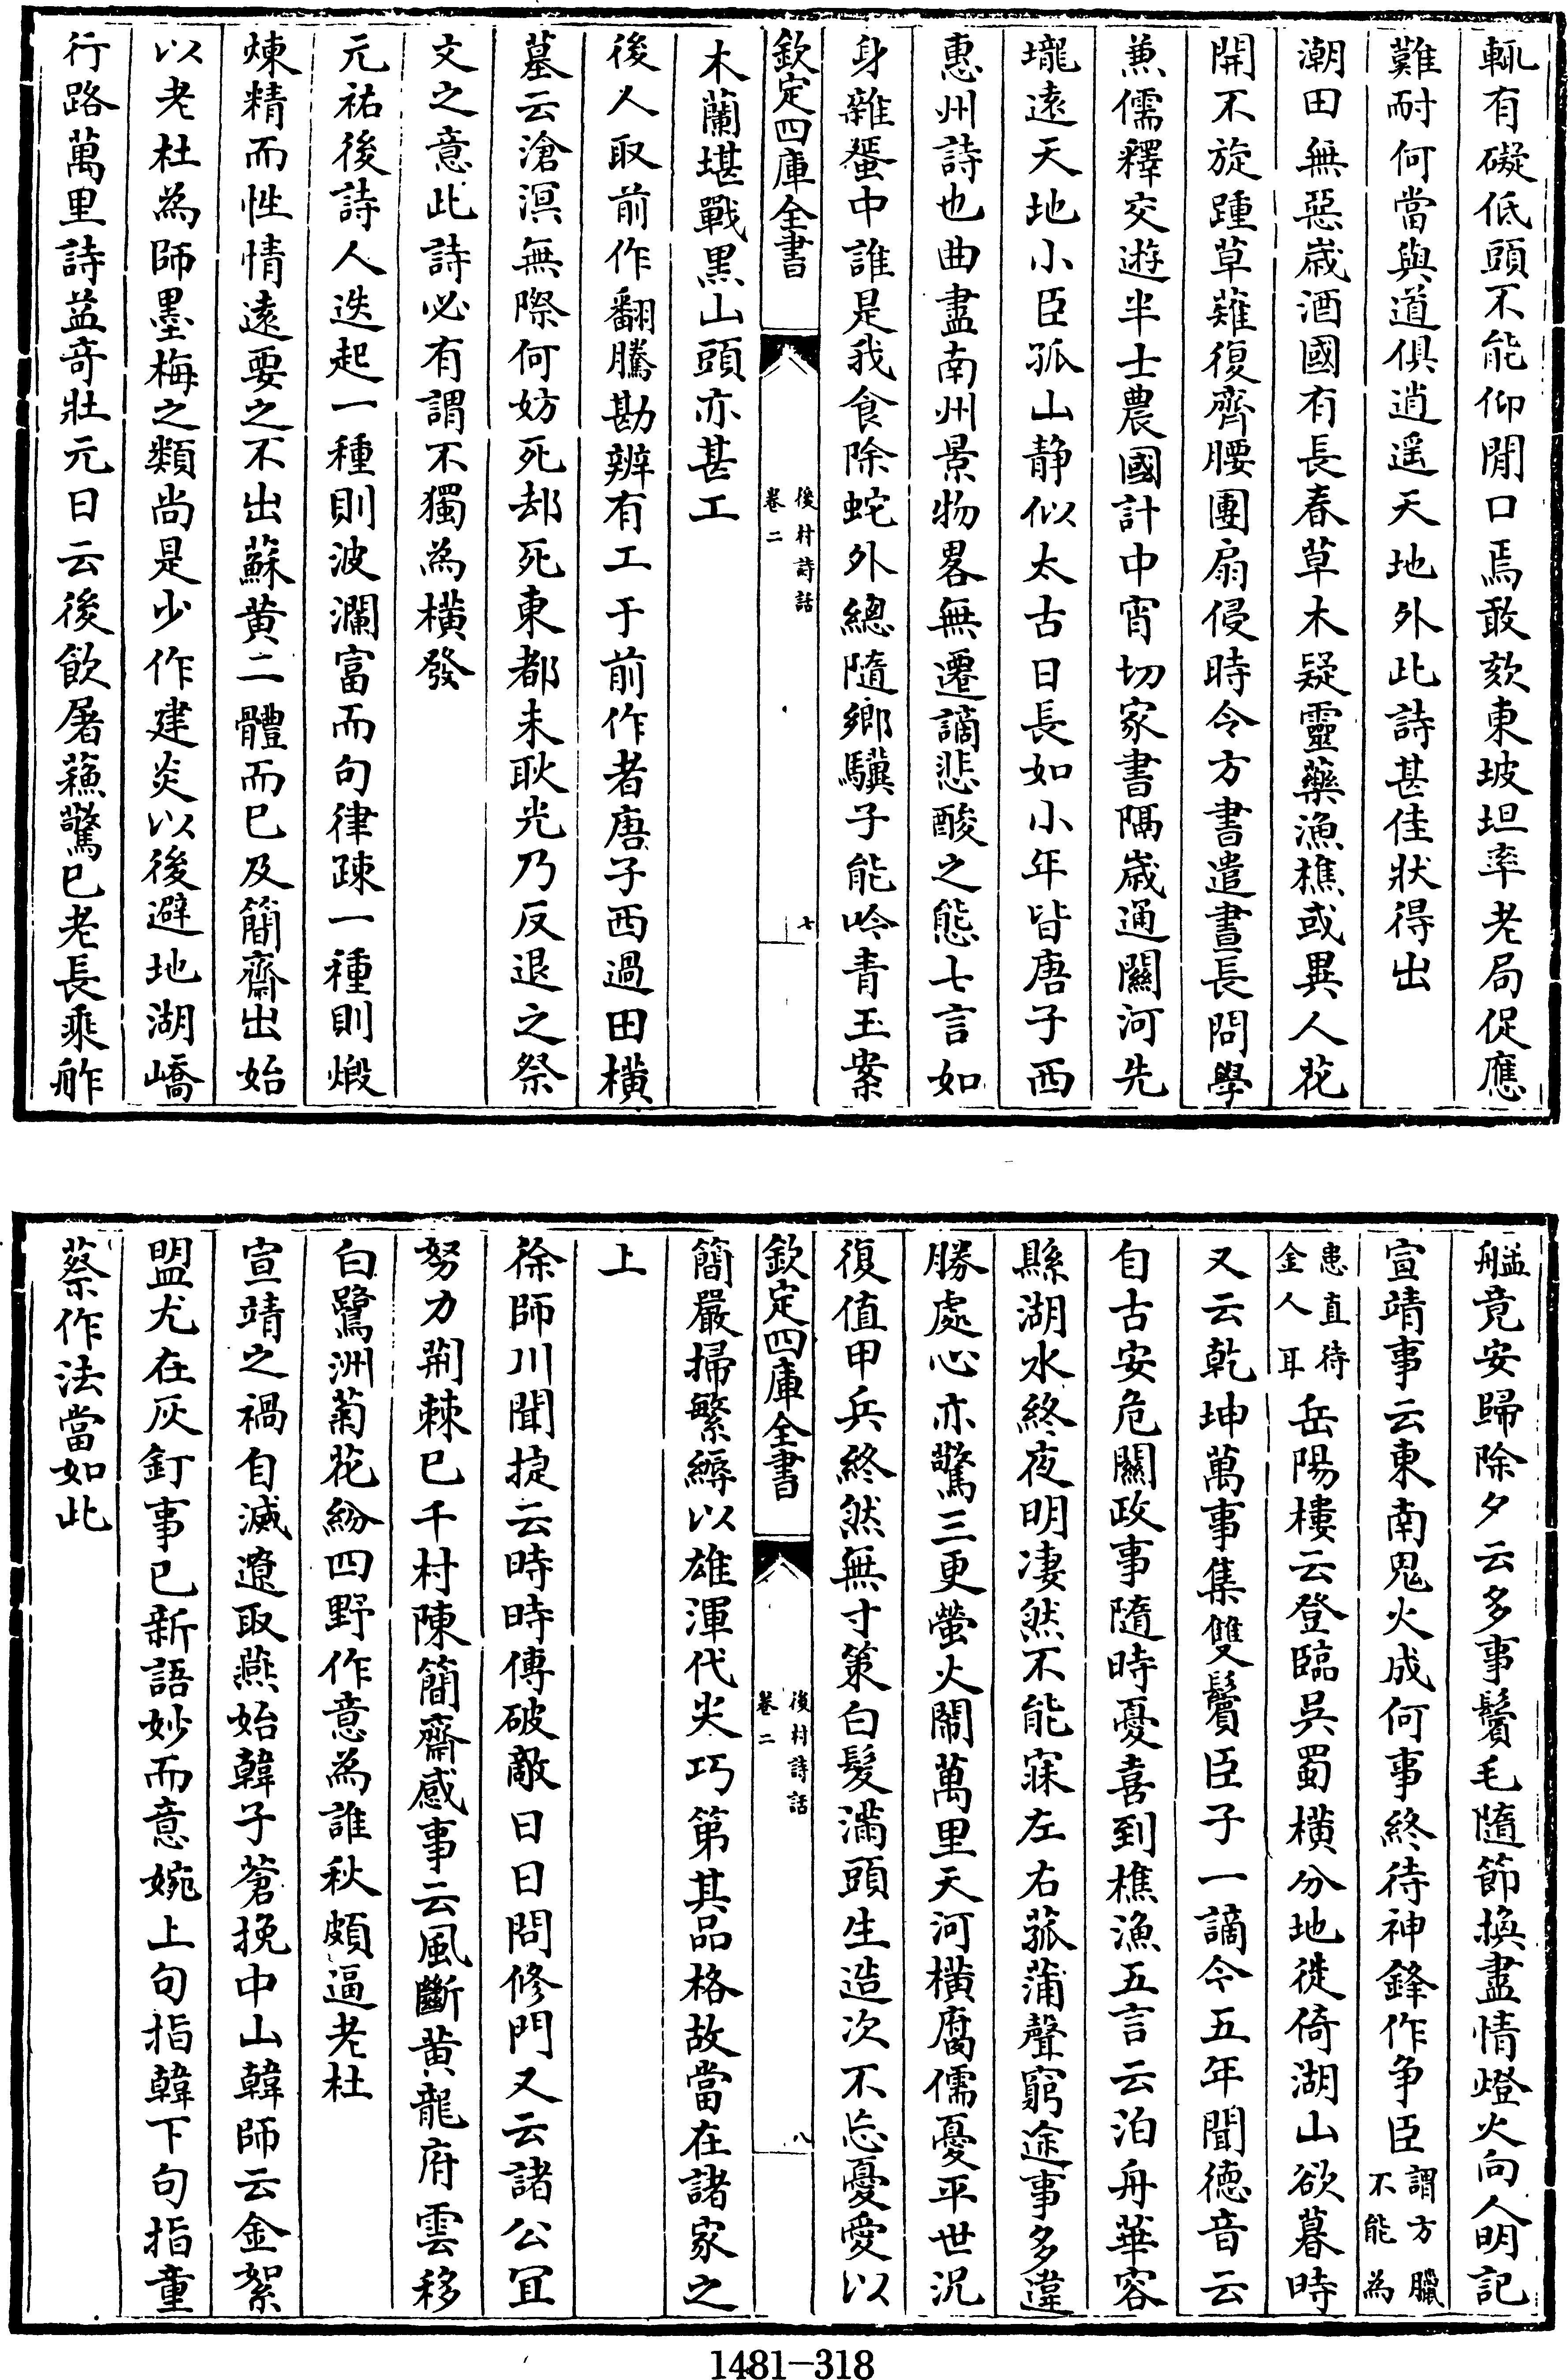 輒有礙低頭不能仰閉口焉敢欬東坡坦率老局促應
難耐何當與道俱逍遥天地外此詩甚佳狀得出
潮田無惡歳酒國有長春草木疑靈藥漁樵或異人花
開不旋踵草薙復齊腰團扇侵時令方書遣晝長問學
兼儒釋交遊半士農國計中宵切家書隔歳通關河先
壠遠天地小臣孤山静似太古日長如小年皆唐子西
惠州詩也曲盡南州景物畧無遷謫悲酸之態七言如
身雜蜑中誰是我食除蛇外總隨鄉驥子能吟青玉案
欽定四庫全書
後村詩話
卷二
七
木蘭堪戰黑山頭亦甚工
後人取前作翻騰勘辨有工于前作者唐子西過田橫
墓云滄溟無際何妨死却死東都未耿光乃反退之祭
文之意此詩必有謂不獨為橫發
元祐後詩人迭起一種則波瀾富而句律疎一種則煅
煉精而性情遠要之不出蘇黄二體而已及簡齋出始
以老杜為師墨梅之類尚是少作建炎以後避地湖嶠
行路萬里詩益奇壯元日云後飲屠蘇驚已老長乘舴
艋竟安歸除夕云多事鬢毛隨節換盡情燈火向人明記
宣靖事云東南鬼火成何事終待神鋒作争臣謂方臘
不能為
患直待
金人耳岳陽樓云登臨吳蜀橫分地徙倚湖山欲暮時
又云乾坤萬事集雙鬢臣子一謫今五年聞德音云
自古安危關政事隨時憂喜到樵漁五言云泊舟華容
縣湖水終夜明凄然不能寐左右菰蒲聲窮途事多違
勝處心亦驚三更螢火鬧萬里天河橫腐儒憂平世况
復值甲兵終然無寸策白髮滿頭生造次不忘憂愛以
欽定四庫全書
後村詩話
卷二
八
簡嚴掃繁縟以雄渾代尖巧第其品格故當在諸家之
上
徐師川聞捷云時時傳破敵日日問修門又云諸公冝
努力荆棘已千村陳簡齋感事云風斷黄龍府雲移
白鷺洲菊花紛四野作意為誰秋頗逼老杜
宣靖之禍自滅遼取燕始韓子蒼挽中山韓師云金絮
盟尤在灰釘事已新語妙而意婉上句指韓下句指童
蔡作法當如此
1481-318